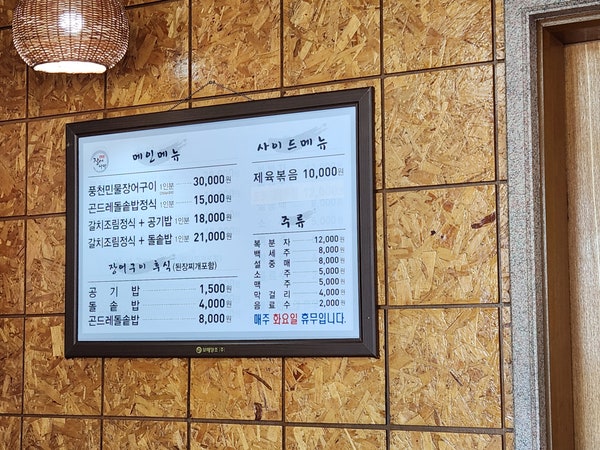 메인메뉴
풍천민물장어구이 1인분 30,000원
곤드레돌솥밥정식 1인분 15,000원
갈치조림정식 + 공기밥 1인분 18,000원
갈치조림정식 + 돌솥밥 1인분 21,000원
장어구이 후식 (된장찌개포함)
공기밥 1,500원
돌솥밥 4,000원
곤드레돌솥밥 8,000원
사이드메뉴
제육볶음 10,000원
주류
복분자 12,000원
백세주 8,000원
설중매 8,000원
소주 5,000원
맥주 5,000원
막걸리 4,000원
음료수 2,000원
매주 화요일 휴무입니다.
보해양조(주)